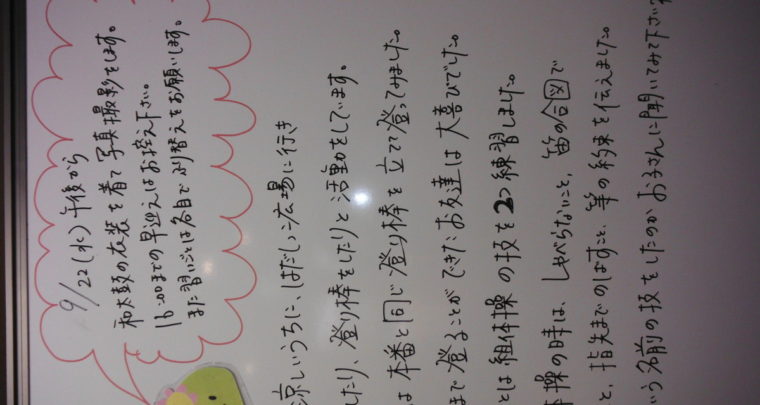 9/22(水) 午後から
和太鼓の衣装を着て写真撮影をします。
16:00までの早迎えはお控え下さい。
また習いごとは各自でふり替えをお願いします。
涼しいうちに、はだしっこ広場に行き
したり、登り棒をしたりと活動をしています。
は本番と同じ登り棒を立て登ってみました。
まで登ることができたお友達は大喜びでした。
とは組体操の技を2つ練習しました。
体操の時は、しゃべらないこと、笛の合図で
と、指先までのばすこと、等の約束を伝えました。
いう名前の技をしたのかお子さんに聞いてみて下さい